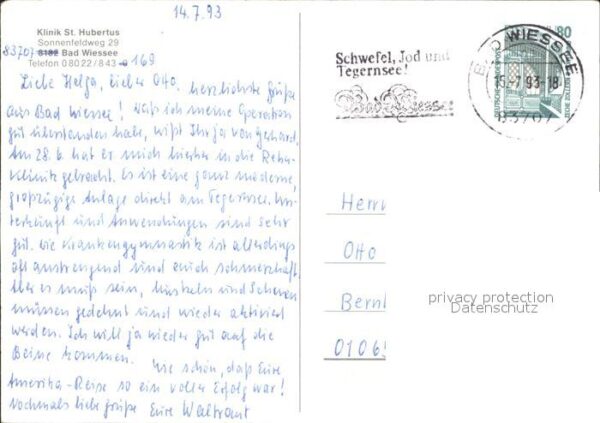 14.7.93
Klinik St. Hubertus
Sonnenfeldweg 29
83707 8182 Bad Wiessee
Telefon 08022/843-0 169
Liebe Helga, lieber Otto, herzlichste Grüße
aus Bad Wiessee! Daß ich meine Operation
gut überstanden habe, wißt Ihr ja von Gerhard.
Am 28.6. hat er mich hierher in die Reha-
klinik gebracht. Es ist eine ganz moderne,
großzügige Anlage direkt am Tegernsee. Un-
terkünfte und Anwendungen sind sehr
gut. Die Krankengymnastik ist allerdings
oft anstrengend und auch schmerzhaft.
Aber es muß sein, Muskeln und Sehnen
müssen gedehnt und wieder aktiviert
werden. Ich will ja wieder gut auf die
Beine kommen.
Wie schön, daß Eure
Amerika-Reise so ein voller Erfolg war!
Nochmals liebe Grüße Eure Waltraut
Schwefel, Jod und
Tegernsee!
Bad Wiessee
BAD WIESSEE
15.-7.93-18
83707
80
DEUTSCHE BUNDESPOST
Herrn
Otto
Bernh
0106
privacy protection
Datenschutz